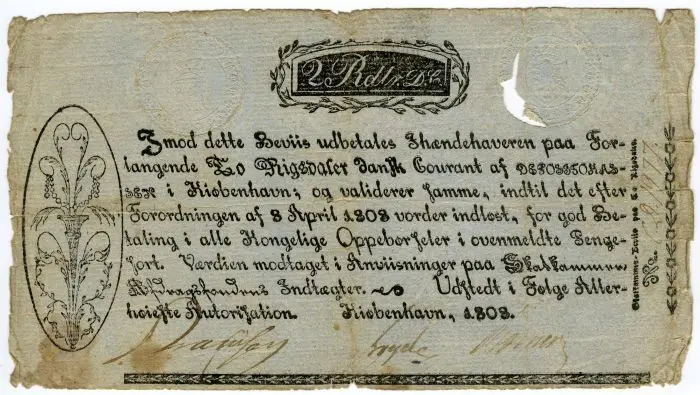 2 Rdlr. D. C.
Imod dette Beviis udbetales Ihændehaveren paa For-
langende To Rigsdaler Dansk Courant af DEPOSITOKAS-
SEN i Kiøbenhavn; og validerer samme, indtil det efter
Forordningen af 8 April 1808 vorder indløst, for god Be-
taling i alle Kongelige Oppebørseler i ovenmeldte Penge-
sort. Værdien modtaget i Anviisninger paa Skatkammer
Afdragsfondens Indtægter. Udstedt i Følge Aller-
høieste Autorisation. Kiøbenhavn, 1808.
Skatkammer Beviis paa To Rigsdaler.
No.